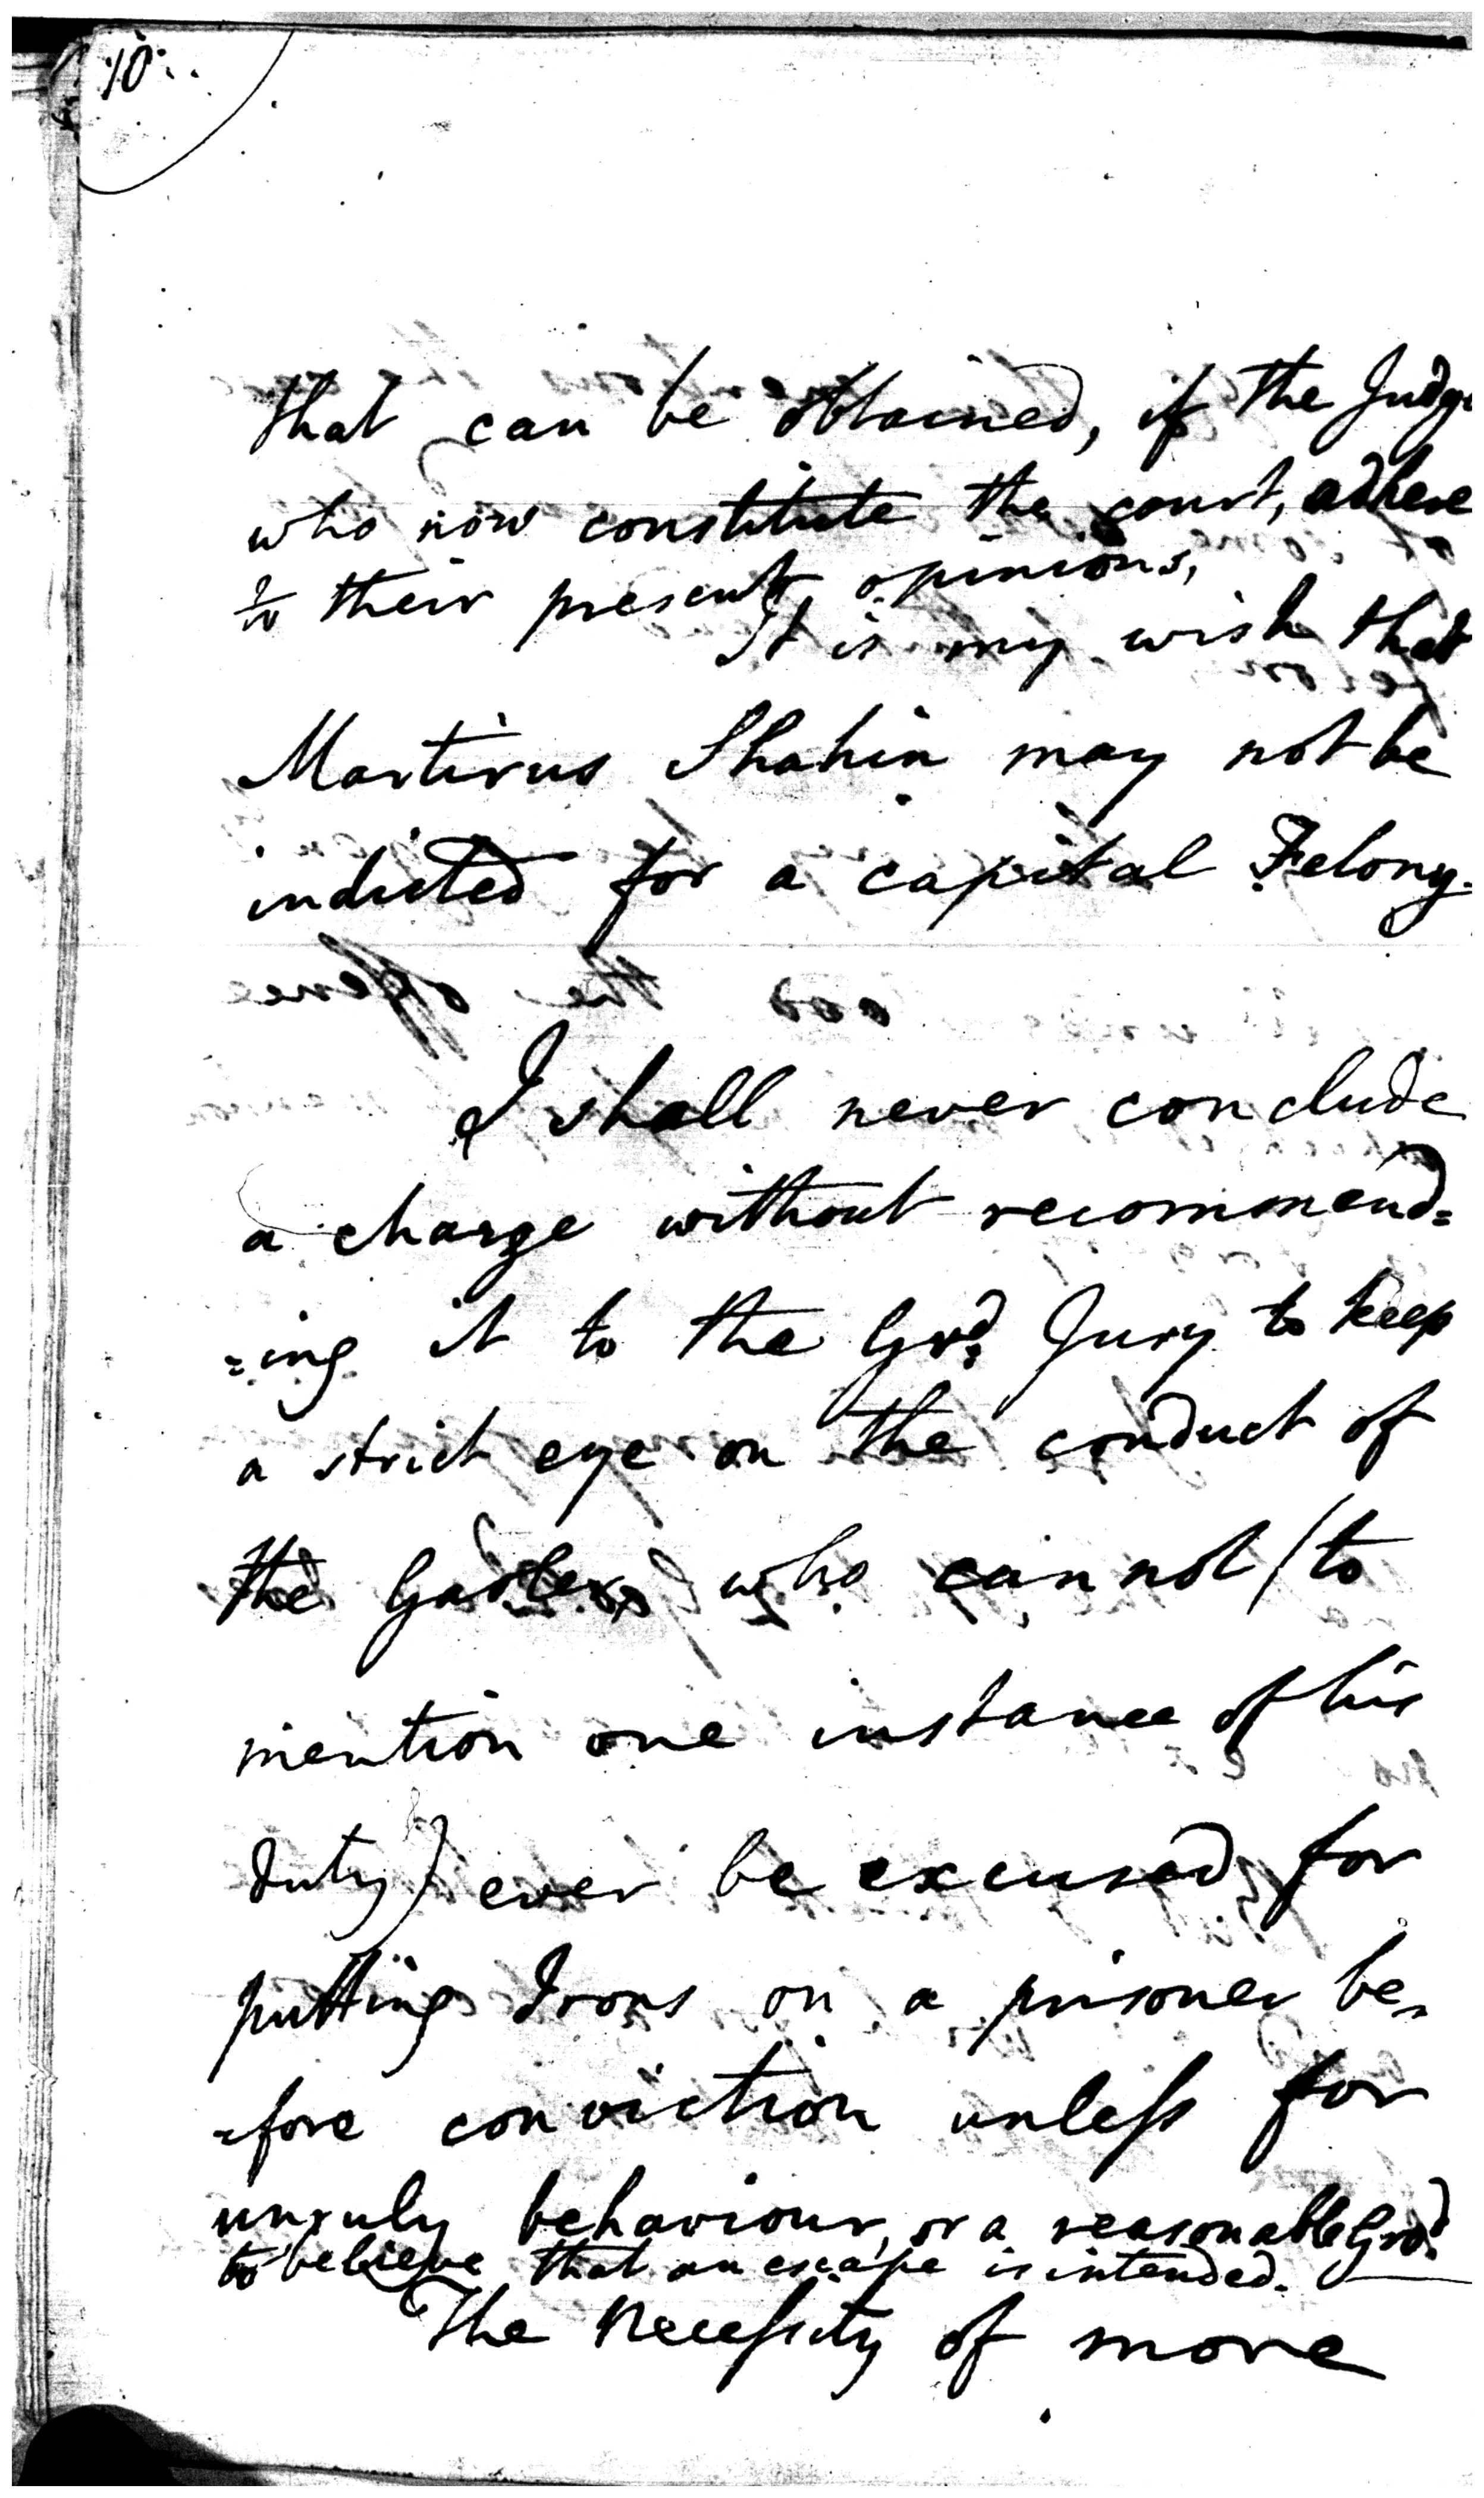 10
that can be obtained, if the Judge
who now constitute the court, adhere
to their present opinions,
It is my wish that
Martirus Shahin may not be
indicted for a capital Felony.
I shall never conclude
a charge without recommend=
=ing it to the Grd. Jury to keep
a strict eye on the conduct of
the Gaoler, who cannot (to
mention one instance of his
duty) ever be excused for
putting Irons on a prisoner be=
=fore conviction unless for
unruly behaviour, or a reasonable Grd.
to believe that an escape is intended.
The Necessity of more